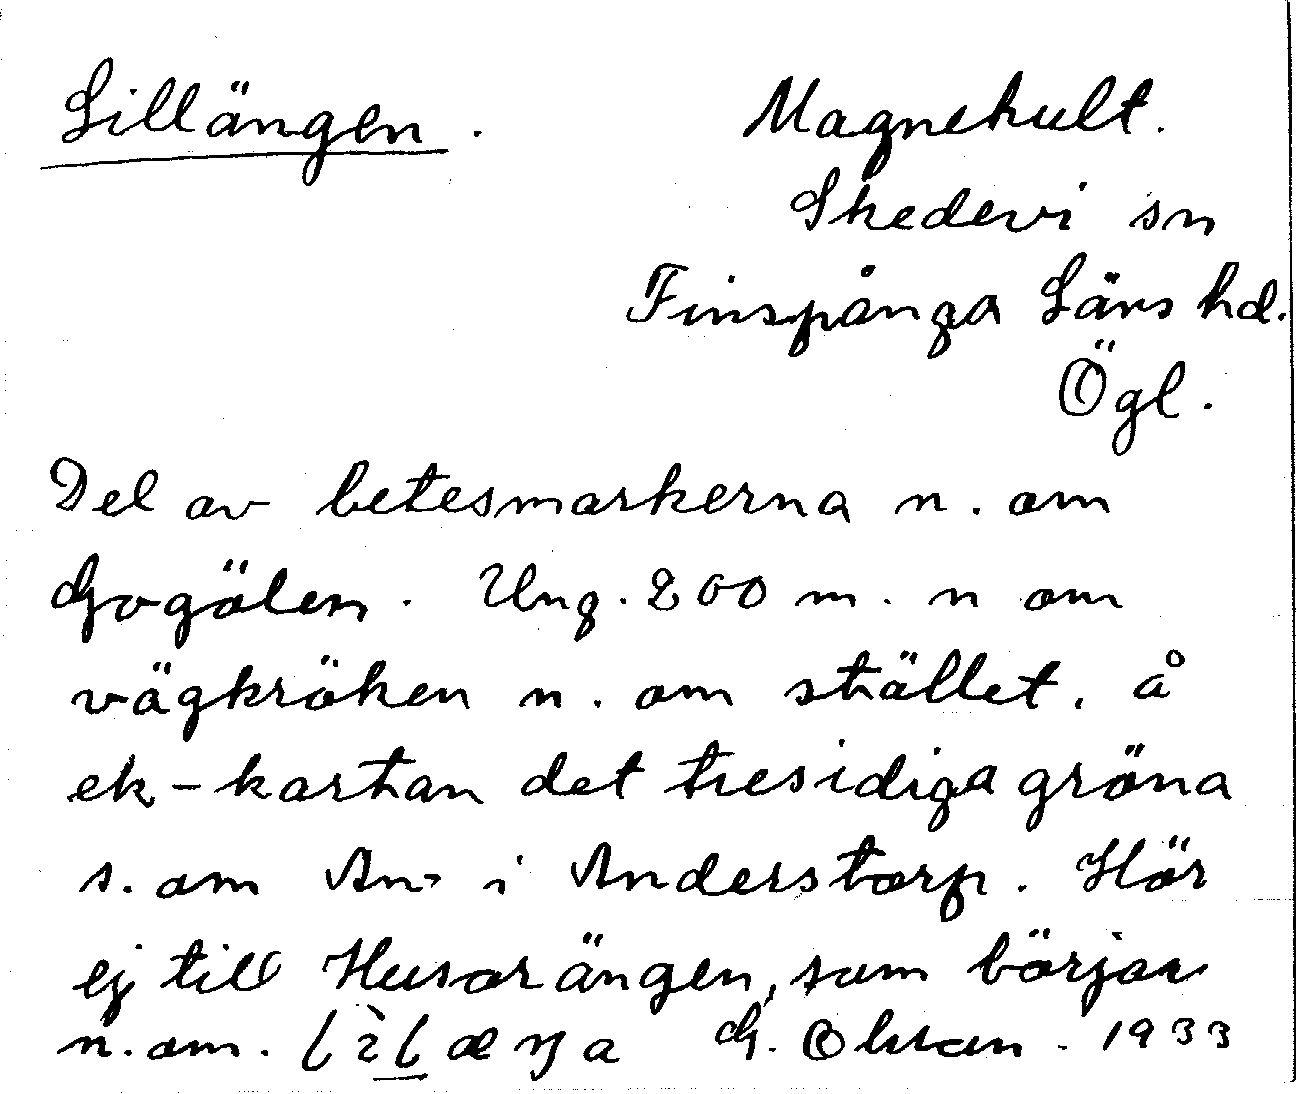 Lillängen.
Magnehult.
Skedevi sn
Finspånga Läns hd.
Ögl.
Del av betesmarkerna n. om
Gogölen. Ung. 200 m. n om
vägkröken n. om stället, å
ek-kartan det tresidiga gröna
s. om An- i Anderstorp. Hör
ej till Husarängen, som börjar
n. om. G. Olsson. 1933